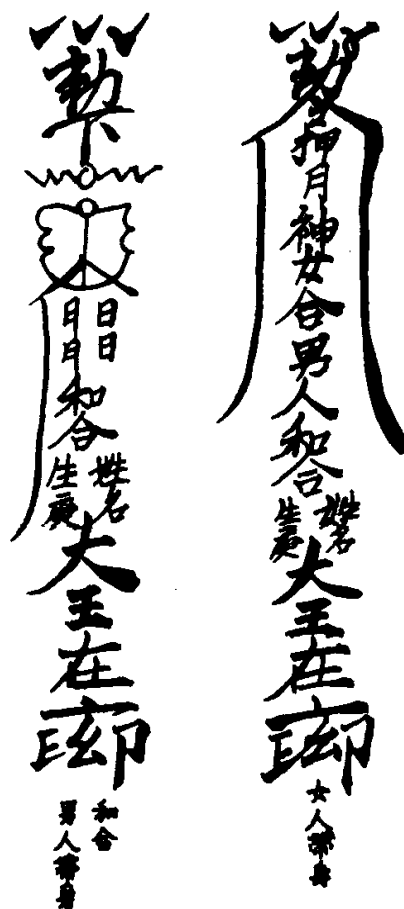 押月神女合男人和合
姓名
生庚
大王在
女人帶身
勅下
日日
月月
和合
姓名
生庚
大王在
和合
男人帶身